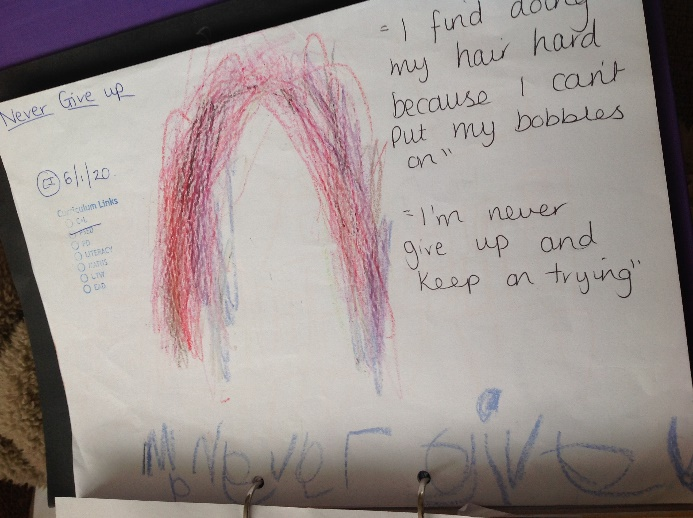 Never Give up
CI 6/1/20.
Curriculum Links
PD
LITERACY
MATHS
UTW
EAD
"I find doing
my hair hard
because I can't
put my bobbles
on"
"I'm never
give up and
keep on trying"
Never give